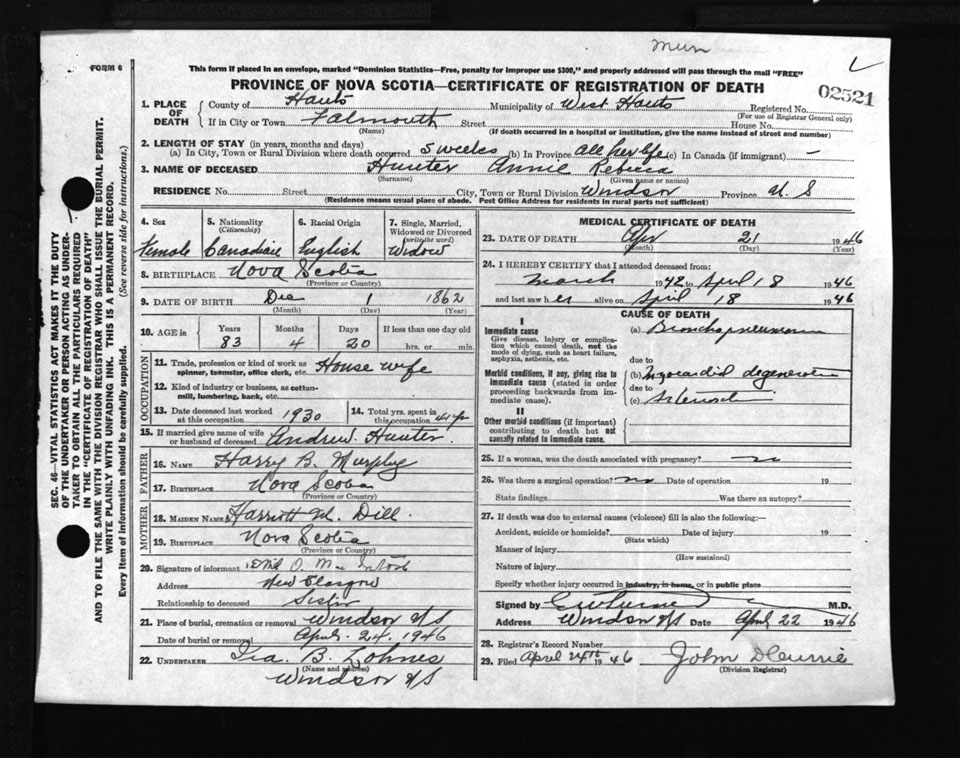 Mun
FORM 6
This form if placed in an envelope, marked "Dominion Statistics—Free, penalty for improper use $300," and properly addressed will pass through the mail "FREE"
PROVINCE OF NOVA SCOTIA—CERTIFICATE OF REGISTRATION OF DEATH
02521
1. PLACE OF DEATH County of Hants Municipality of West Hants Registered No.
(For use of Registrar General only)
If in City or Town Falmouth Street House No.
(Name) (If death occurred in a hospital or institution, give the name instead of street and number)
2. LENGTH OF STAY (in years, months and days)
(a) In City, Town or Rural Division where death occurred 5 weeks (b) In Province all her life (c) In Canada (if immigrant) —
3. NAME OF DECEASED Hunter Annie Rebecca
(Surname) (Given name or names)
RESIDENCE No. Street City, Town or Rural Division Windsor Province N. S
(Residence means usual place of abode. Post Office Address for residents in rural parts not sufficient)
4. Sex 5. Nationality 6. Racial Origin 7. Single, Married,
(Citizenship) Widowed or Divorced
(write the word)
Female Canadian English Widow
8. BIRTHPLACE Nova Scotia
(Province or Country)
9. DATE OF BIRTH Dec 1 1862
(Month) (Day) (Year)
10. AGE in Years Months Days If less than one day old
83 4 20 hrs. or min.
OCCUPATION
11. Trade, profession or kind of work as House wife
spinner, teamster, office clerk, etc.
12. Kind of industry or business, as cotton-
mill, lumbering, bank, etc.
13. Date deceased last worked at this occupation 1930 14. Total yrs. spent in this occupation
15. If married give name of wife or husband of deceased Andrew Hunter
FATHER
16. NAME Harry B. Murphy
17. BIRTHPLACE Nova Scotia
(Province or Country)
MOTHER
18. MAIDEN NAME Harriott M. Dill
19. BIRTHPLACE Nova Scotia
(Province or Country)
20. Signature of informant O. Mac Intosh
Address New Glasgow
Relationship to deceased Sister
21. Place of burial, cremation or removal Windsor N/S
Date of burial or removal April 24. 1946
22. UNDERTAKER Ira B. Lohnes
(Name and address)
Windsor N/S
MEDICAL CERTIFICATE OF DEATH
23. DATE OF DEATH Apr 21 1946
(Month) (Day)
24. I HEREBY CERTIFY that I attended deceased from:
March 1942 to April 18 1946
and last saw her alive on April 18 1946
CAUSE OF DEATH
I
Immediate cause (a) Bronchopneumonia
Give disease, injury or complica-
tion which caused death, not the
mode of dying, such as heart failure,
asphyxia, asthenia, etc. due to
Morbid conditions, if any, giving rise to (b) Myocardial degeneration
immediate cause (stated in order due to
proceeding backwards from im-
mediate cause). (c)
II
Other morbid conditions (if important)
contributing to death but not
causally related to immediate cause.
25. If a woman, was the death associated with pregnancy? no
26. Was there a surgical operation? no Date of operation 19
State findings Was there an autopsy?
27. If death was due to external causes (violence) fill in also the following:—
Accident, suicide or homicide? Date of injury 19
(State which)
Manner of injury
(How sustained)
Nature of injury
Specify whether injury occurred in industry, in home, or in public place
Signed by M.D.
Address Windsor N/S Date April 22 1946
28. Registrar's Record Number
29. Filed April 24th 1946 John D Currie
(Division Registrar)
SEC. 46—VITAL STATISTICS ACT MAKES IT THE DUTY
OF THE UNDERTAKER OR PERSON ACTING AS UNDER-
TAKER TO OBTAIN ALL THE PARTICULARS REQUIRED
IN THE "CERTIFICATE OF REGISTRATION OF DEATH"
AND TO FILE THE SAME WITH THE DIVISION REGISTRAR WHO SHALL ISSUE THE BURIAL PERMIT.
WRITE PLAINLY WITH UNFADING INK. THIS IS A PERMANENT RECORD.
Every item of information should be carefully supplied. (See reverse side for instructions.)